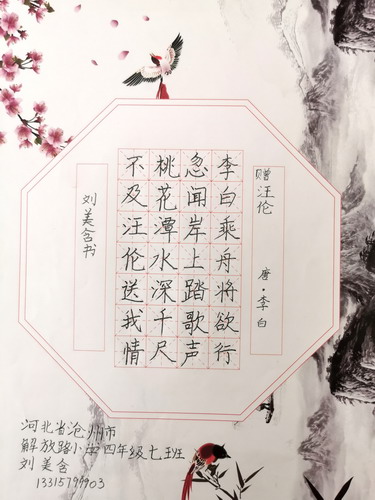 赠汪伦
唐·李白
李白乘舟将欲行
忽闻岸上踏歌声
桃花潭水深千尺
不及汪伦送我情
刘美含书
河北省沧州市
解放路小学四年级七班
刘美含